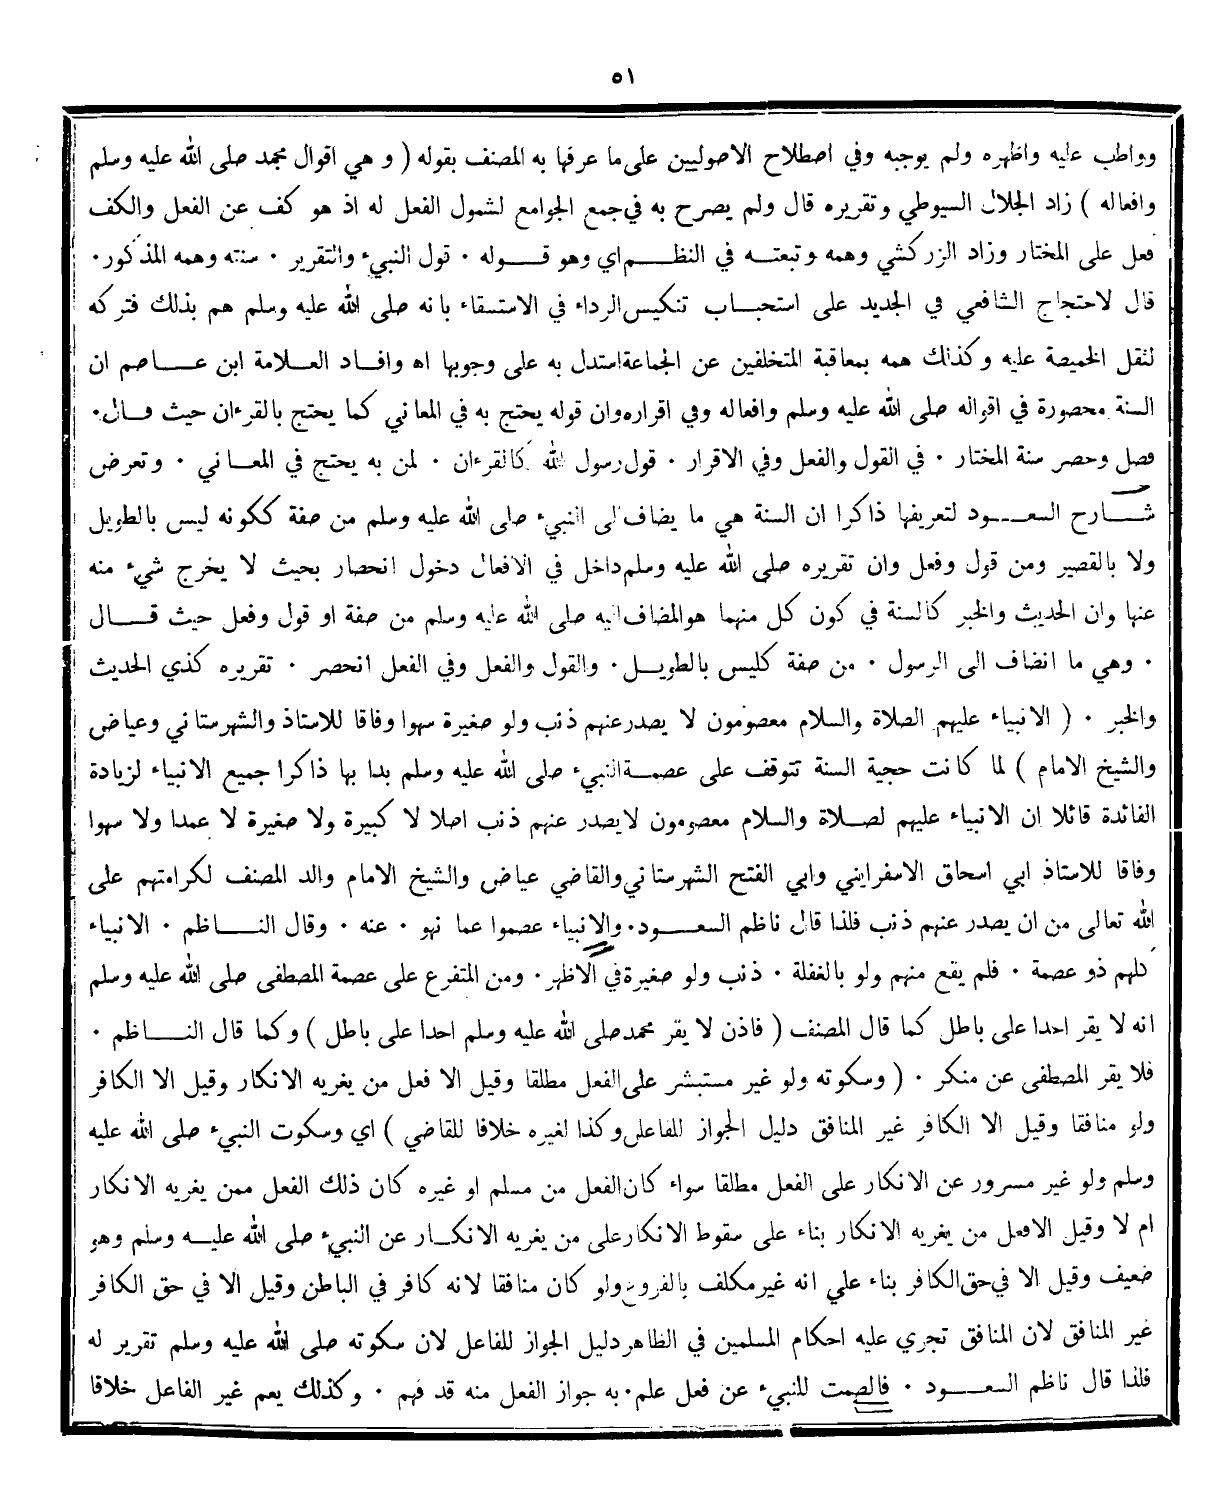 ٥١
وواظب عليه واظهره ولم يوجبه وفي اصطلاح الاصوليين على ما عرفها به المصنف بقوله ( و هي اقوال محمد صلى الله عليه وسلم
وافعاله ) زاد الجلال السيوطي وتقريره قال ولم يصرح به في جمع الجوامع لشمول الفعل له اذ هو كف عن الفعل والكف
فعل على المختار وزاد الزركشي وهمه وتبعته في النظم اي وهو قوله ٠ قول النبيء والتقرير ٠ سنته وهمه المذكور ٠
قال لاحتجاج الشافعي في الجديد على استحباب تنكيس الرداء في الاستسقاء بانه صلى الله عليه وسلم هم بذلك فتركه
لثقل الخميصة عليه وكذلك همه بمعاقبة المتخلفين عن الجماعة استدل به على وجوبها اه وافاد العلامة ابن عاصم ان
السنة محصورة في اقواله صلى الله عليه وسلم وافعاله وفي اقراره وان قوله يحتج به في المعاني كما يحتج بالقرءان حيث قال ٠
فصل وحصر سنة المختار ٠ في القول والفعل وفي الاقرار ٠ قول رسول الله كالقرءان ٠ لمن به يحتج في المعاني ٠ وتعرض
شارح السعود لتعريفها ذاكرا ان السنة هي ما يضاف الى النبيء صلى الله عليه وسلم من صفة ككونه ليس بالطويل
ولا بالقصير ومن قول وفعل وان تقريره صلى الله عليه وسلم داخل في الافعال دخول انحصار بحيث لا يخرج شيء منه
عنها وان الحديث والخبر كالسنة في كون كل منهما هو المضاف اليه صلى الله عليه وسلم من صفة او قول وفعل حيث قال
٠ وهي ما انضاف الى الرسول ٠ من صفة كليس بالطويل ٠ والقول والفعل وفي الفعل انحصر ٠ تقريره كذي الحديث
والخبر ٠ ( الانبياء عليهم الصلاة والسلام معصومون لا يصدر عنهم ذنب ولو صغيرة سهوا وفاقا للاستاذ والشهرستاني وعياض
والشيخ الامام ) لما كانت حجية السنة تتوقف على عصمة النبيء صلى الله عليه وسلم بدا بها ذاكرا جميع الانبياء لزيادة
الفائدة قائلا ان الانبياء عليهم لصلاة والسلام معصومون لا يصدر عنهم ذنب اصلا لا كبيرة ولا صغيرة لا عمدا ولا سهوا
وفاقا للاستاذ ابي اسحاق الاسفرايني وابي الفتح الشهرستاني والقاضي عياض والشيخ الامام والد المصنف لكرامتهم على
الله تعالى من ان يصدر عنهم ذنب فلذا قال ناظم السعود ٠ والانبياء عصموا عما نهو ٠ عنه ٠ وقال الناظم ٠ الانبياء
كلهم ذو عصمة ٠ فلم يقع منهم ولو بالغفلة ٠ ذنب ولو صغيرة في الاظهر ٠ ومن المتفرع على عصمة المصطفى صلى الله عليه وسلم
انه لا يقر احدا على باطل كما قال المصنف ( فاذن لا يقر محمد صلى الله عليه وسلم احدا على باطل ) وكما قال الناظم ٠
فلا يقر المصطفى عن منكر ٠ ( وسكوته ولو غير مستبشر على الفعل مطلقا وقيل الا فعل من يغريه الانكار وقيل الا الكافر
ولو منافقا وقيل الا الكافر غير المنافق دليل الجواز للفاعل وكذا لغيره خلافا للقاضي ) اي وسكوت النبيء صلى الله عليه
وسلم ولو غير مسرور عن الانكار على الفعل مطلقا سواء كان الفعل من مسلم او غيره كان ذلك الفعل ممن يغريه الانكار
ام لا وقيل الافعل من يغريه الانكار بناء على سقوط الانكار على من يغريه الانكار عن النبيء صلى الله عليه وسلم وهو
ضعيف وقيل الا في حق الكافر بناء علي انه غير مكلف بالفروع ولو كان منافقا لانه كافر في الباطن وقيل الا في حق الكافر
غير المنافق لان المنافق تجري عليه احكام المسلمين في الظاهر دليل الجواز للفاعل لان سكوته صلى الله عليه وسلم تقرير له
فلذا قال ناظم السعود ٠ فالصمت للنبيء عن فعل علم ٠ به جواز الفعل منه قد فهم ٠ وكذلك يعم غير الفاعل خلافا